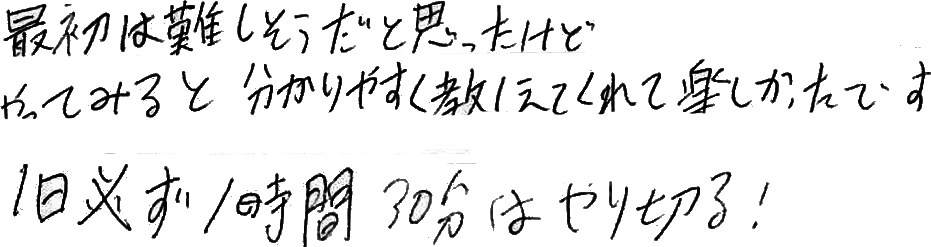 最初は難しそうだと思ったけど
やってみると分かりやすく教えてくれて楽しかったです
1日必ず1時間30分はやり切る!